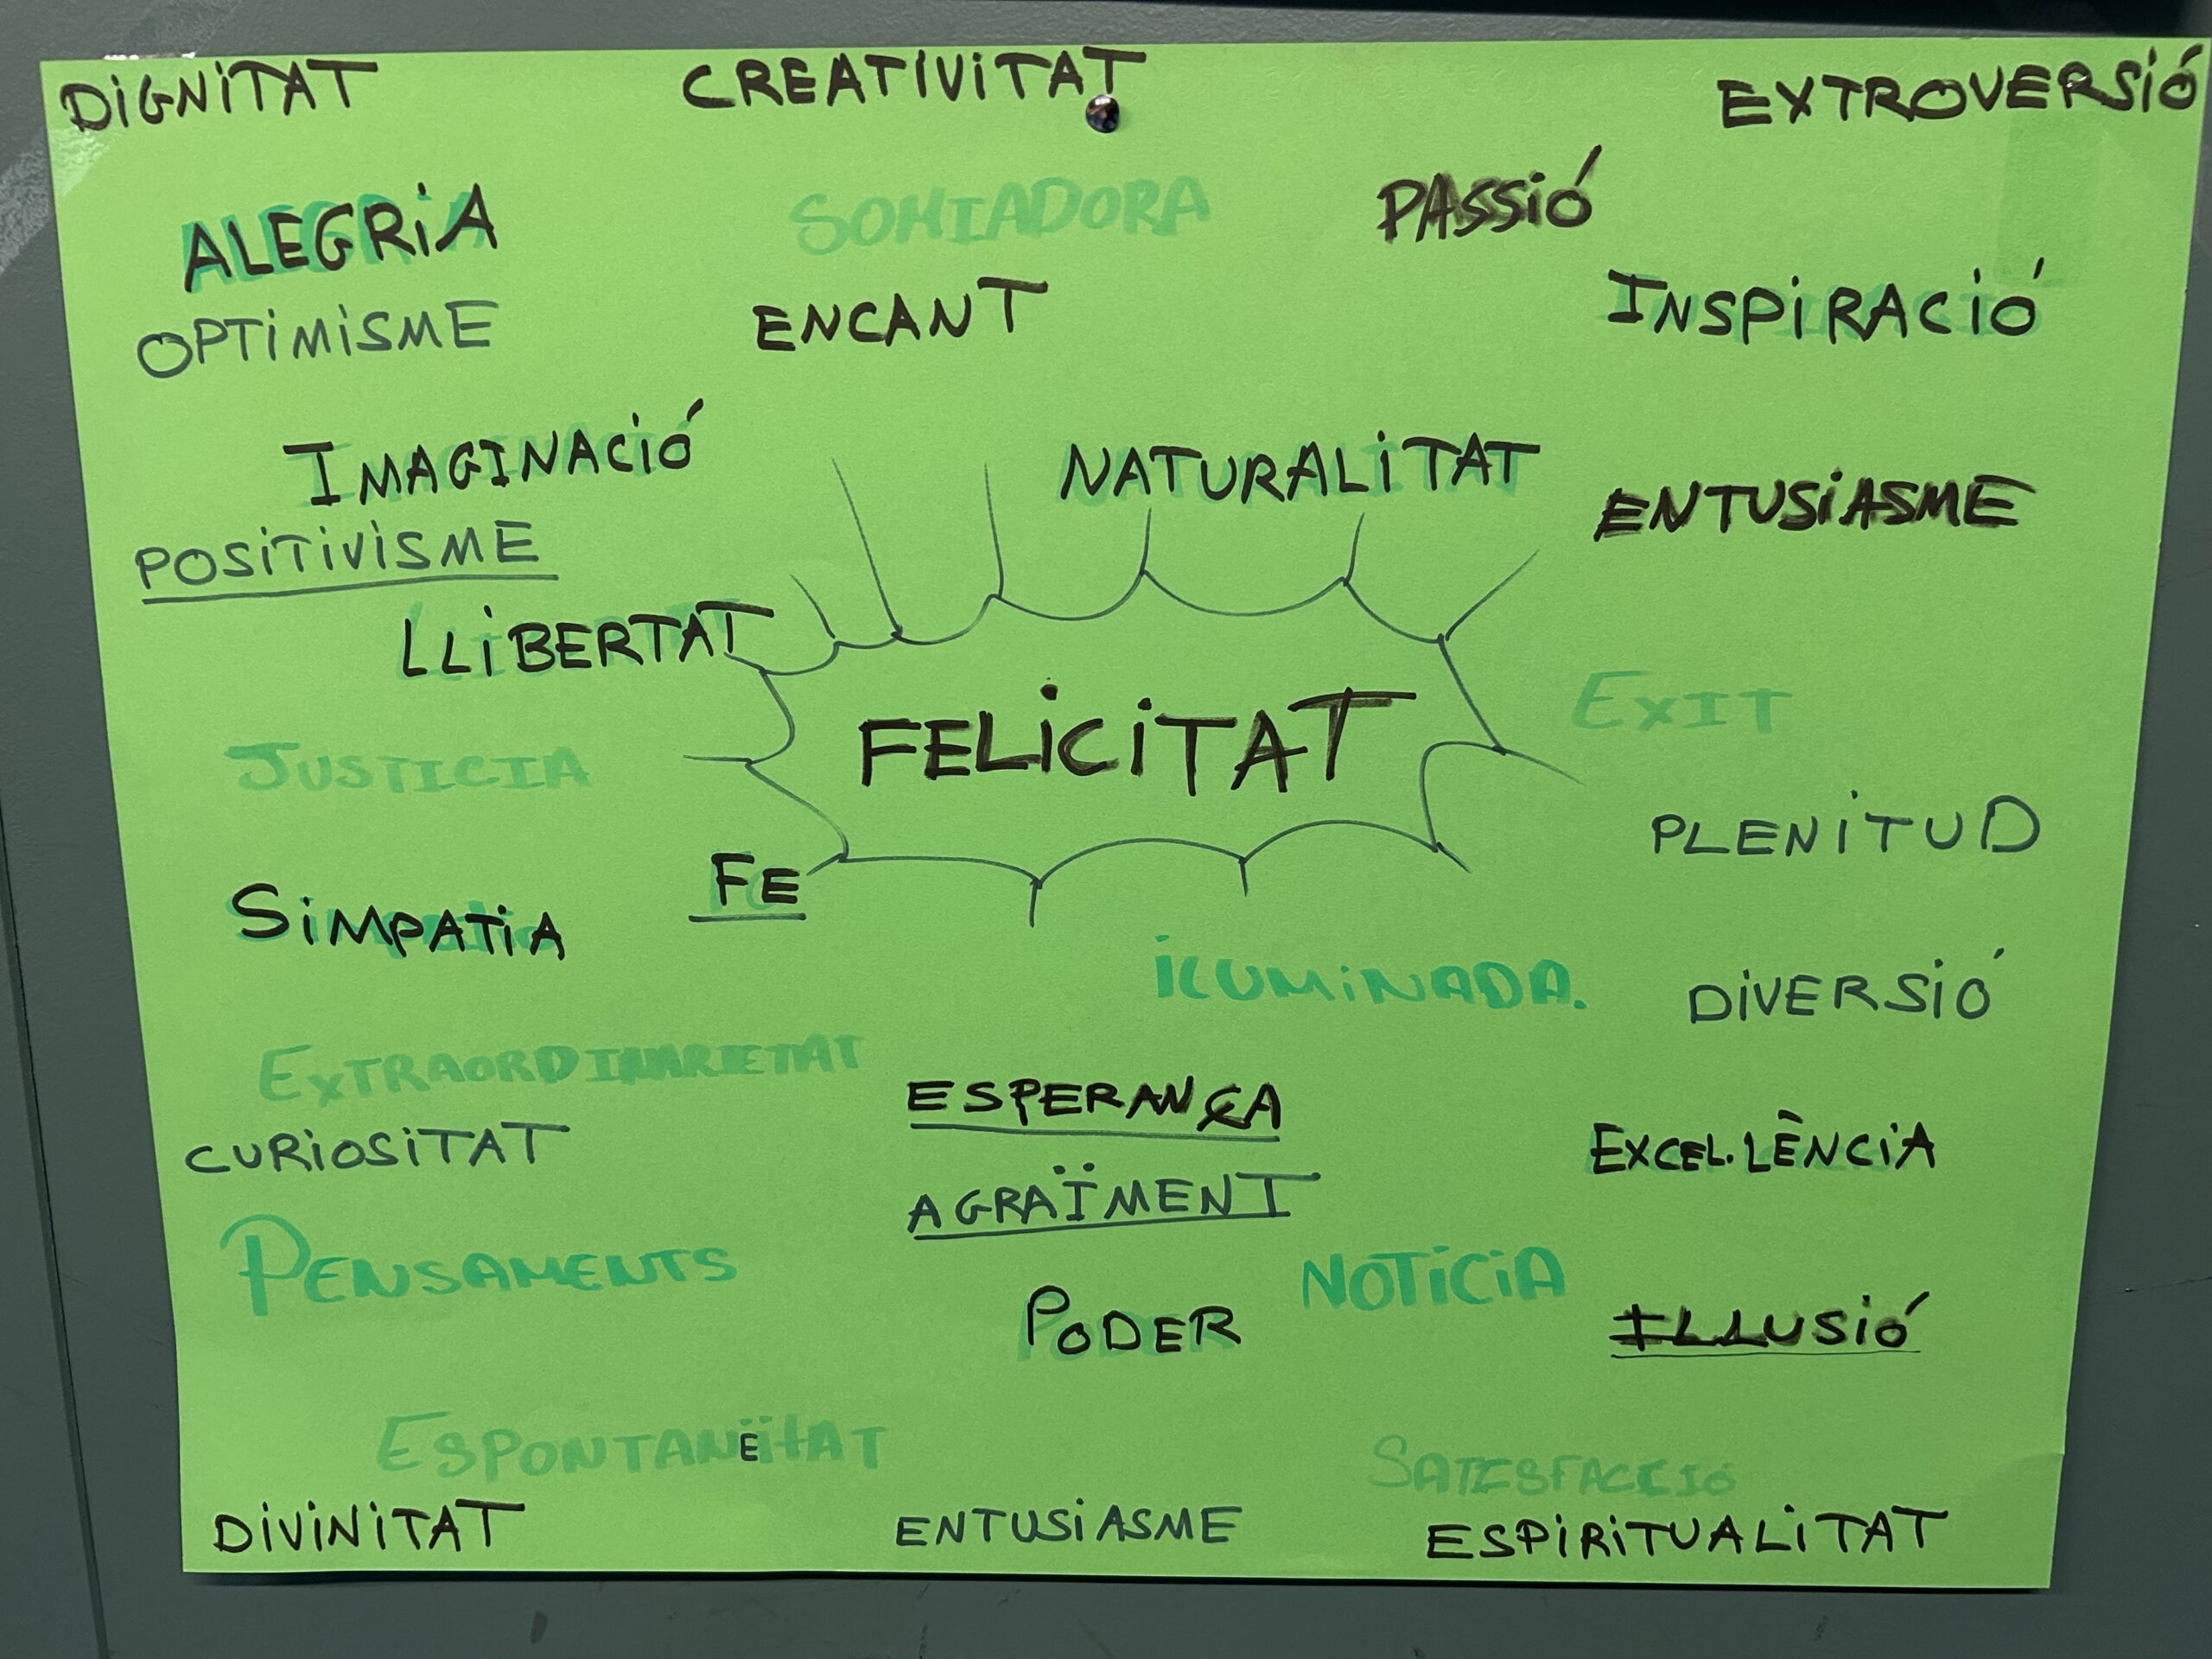 DIGNITAT
CREATIVITAT
EXTROVERSIÓ
ALEGRIA
SOMIADORA
PASSIÓ
OPTIMISME
ENCANT
INSPIRACIÓ
IMAGINACIÓ
NATURALITAT
ENTUSIASME
POSITIVISME
LLIBERTAT
FELICITAT
EXIT
JUSTICIA
PLENITUD
FE
SIMPATIA
ILUMINADA.
DIVERSIÓ
EXTRAORDINARIETAT
ESPERANÇA
CURIOSITAT
EXCEL.LÈNCIA
AGRAÏMENT
PENSAMENTS
NOTÍCIA
PODER
ILLUSIÓ
ESPONTANEÏTAT
SATISFACCIÓ
DIVINITAT
ENTUSIASME
ESPIRITUALITAT